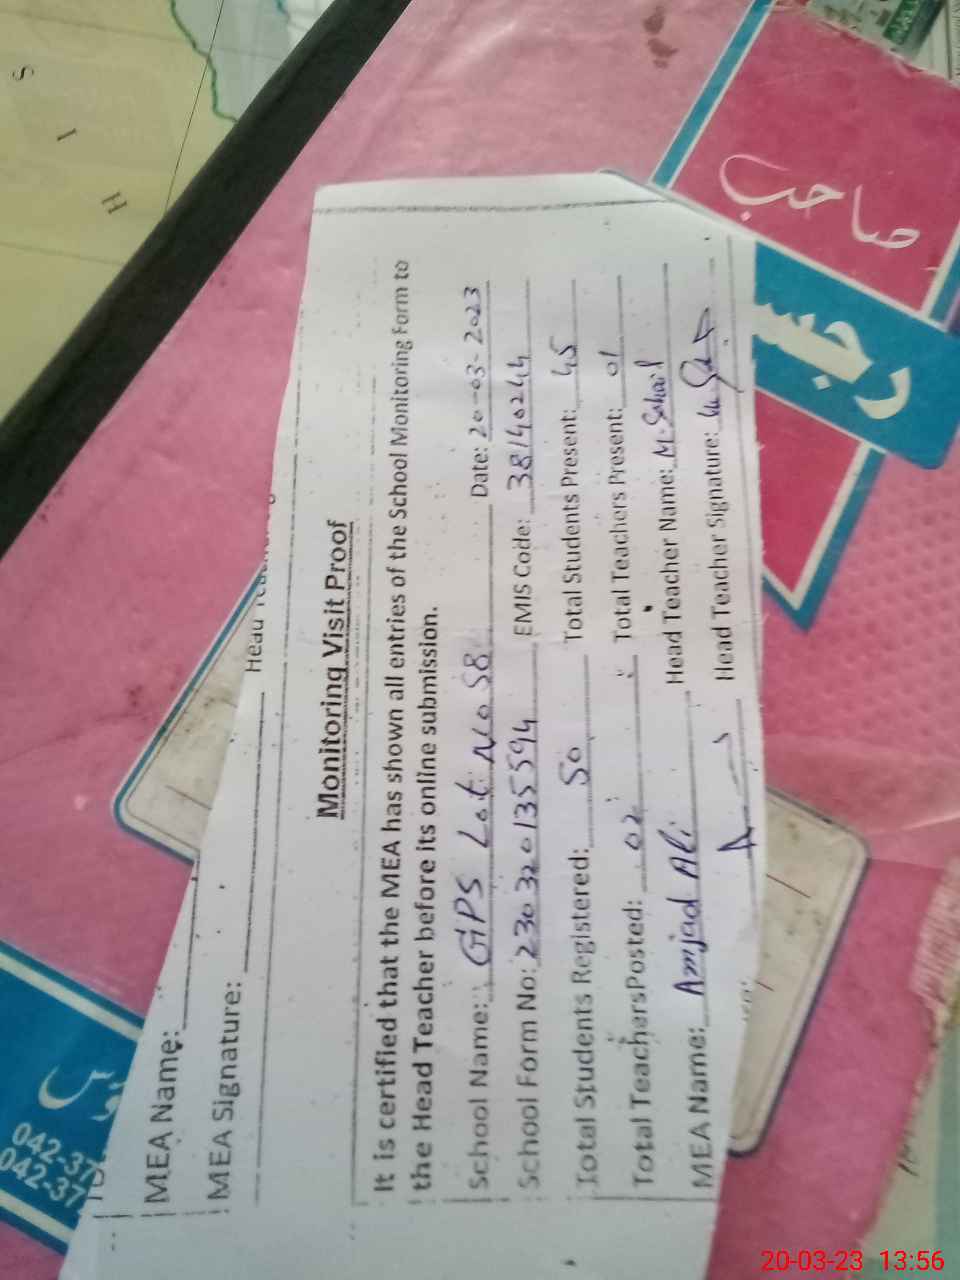 S I H
صاحب
042-37
042-37
MEA Name:
MEA Signature:
Monitoring Visit Proof
It is certified that the MEA has shown all entries of the School Monitoring Form to
the Head Teacher before its online submission.
School Name: GPS Lot No 58 Date: 20-03-2023
School Form No: 230320135594 EMIS Code: 38140244
Total Students Registered: 50 Total Students Present: 45
Total TeachersPosted: 02 Total Teachers Present: 01
MEA Name: Amjad Ali Head Teacher Name: M. Sohail
Head Teacher Signature:
20-03-23 13:56